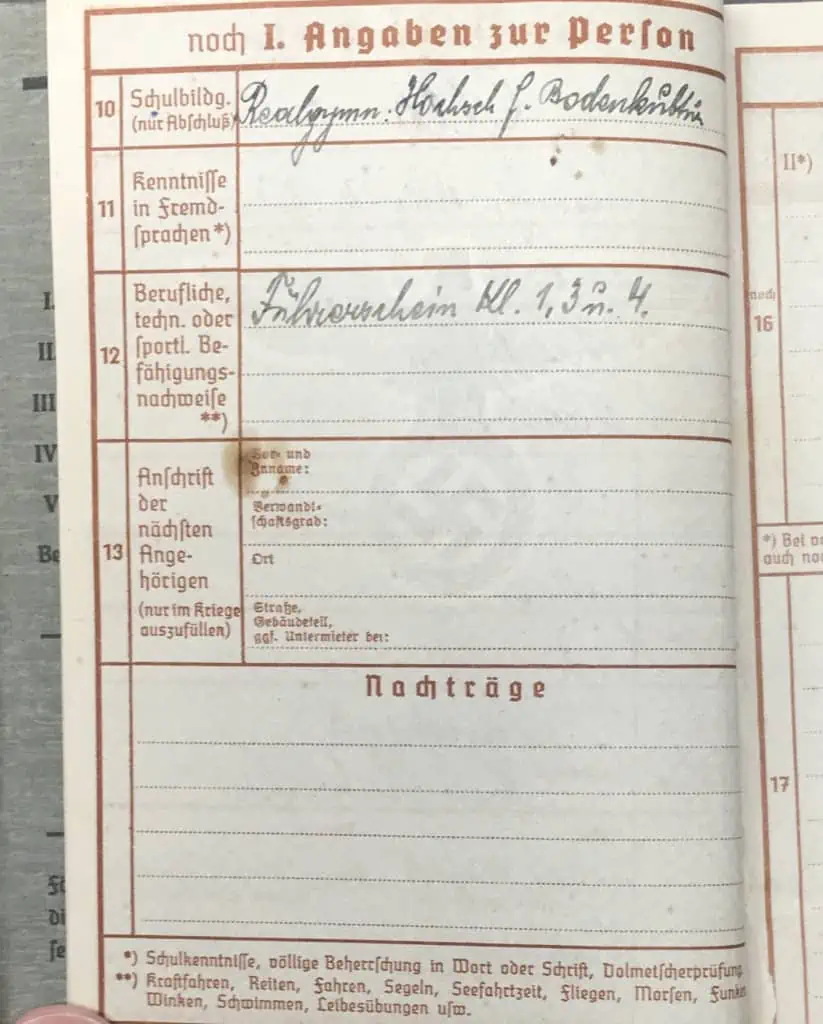 noch I. Angaben zur Person
10 Schulbildg.
(nur Abschluß)
Realgymn. Hochsch f. Bodenkultur
11 Kenntnisse
in Fremd-
sprachen *)
12 Berufliche,
techn. oder
sportl. Be-
fähigungs-
nachweise
**)
Führerschein Kl. 1, 3 u. 4.
13 Anschrift
der
nächsten
Ange-
hörigen
(nur im Kriege
auszufüllen)
Vor- und
Zuname:
Verwandt-
schaftsgrad:
Ort
Straße,
Gebäudeteil,
ggf. Untermieter bei:
Nachträge
*) Schulkenntnisse, völlige Beherrschung in Wort oder Schrift, Dolmetscherprüfung
**) Kraftfahren, Reiten, Fahren, Segeln, Seefahrtzeit, Fliegen, Morsen, Funken
Winken, Schwimmen, Leibesübungen usw.
II*)
noch
16
*) Bei
auch
17
I.
II
III
IV
V